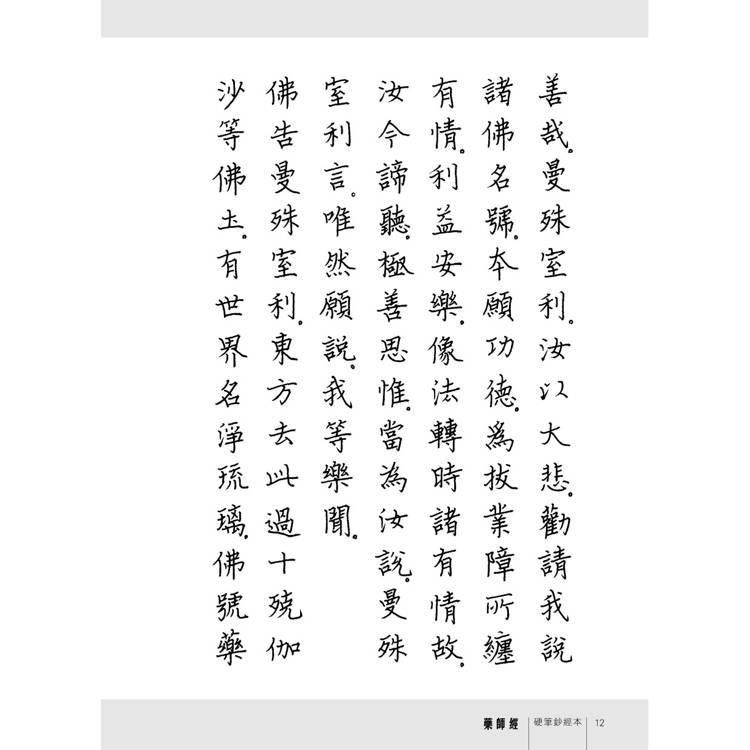 善哉。曼殊室利。汝以大悲。勸請我說
諸佛名號。本願功德。為拔業障所纏
有情。利益安樂。像法轉時諸有情故。
汝今諦聽。極善思惟。當為汝說。曼殊
室利言。唯然願說。我等樂聞。
佛告曼殊室利。東方去此過十殑伽
沙等佛土。有世界名淨琉璃。佛號藥
藥師經 硬筆鈔經本 12